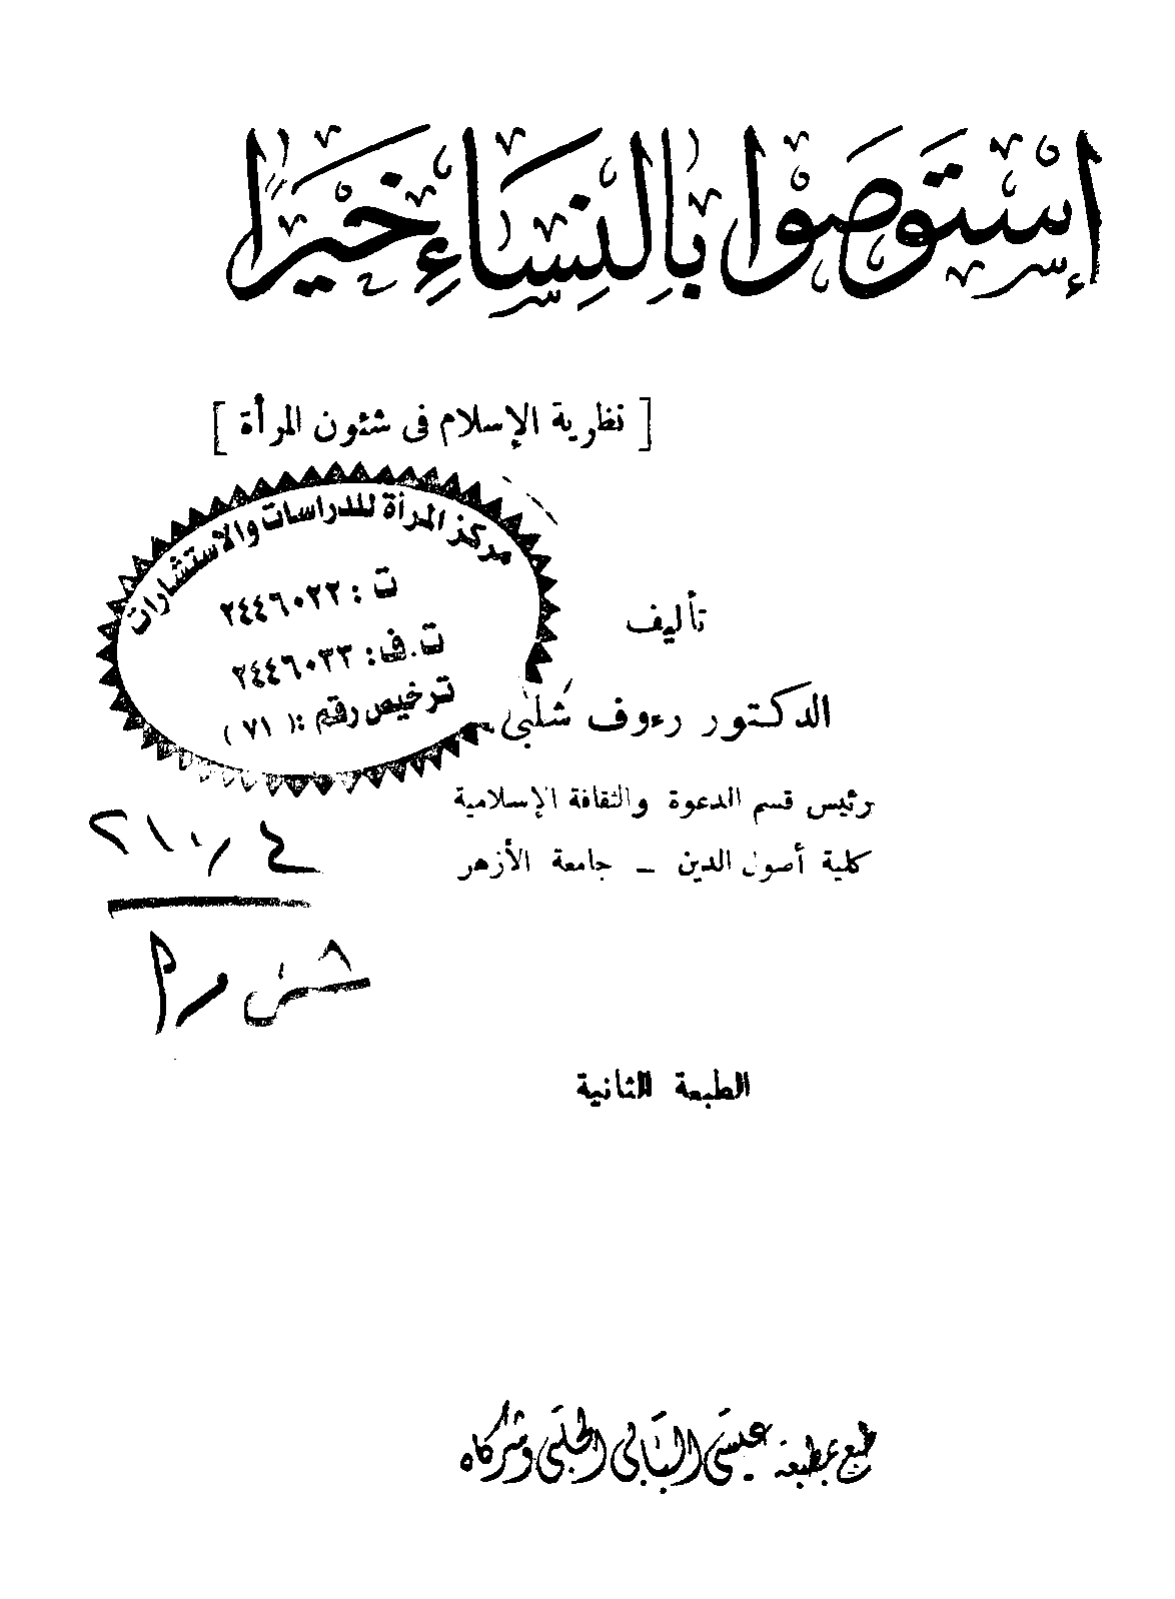 إِسْتَوصُوا بِالنِسَاءِ خَيْرًا
[ نظرية الإسلام فى شئون المرأة ]
مركز المرأة للدراسات والاستشارات
ت : ٢٤٤٦٠٢٢
ت.ف : ٢٤٤٦٠٣٣
ترخيص رقم : ( ٧١ )
تأليف
الدكتور رءوف شلبى
رئيس قسم الدعوة والثقافة الإسلامية
كلية أصول الدين — جامعة الأزهر
٢١٠٫٤
الطبعة الثانية
طبع بمطبعة عيسى البابى الحلبى وشركاه